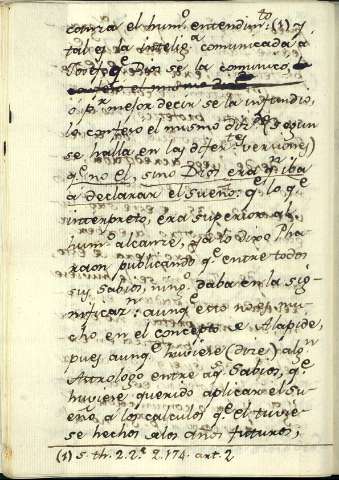 contra el hum.º entendim.to (1) y
tal es la intelig.a comunicada á
q.e Dios se la comunicó,
ó p.r mejor decir se la infundió,
el mismo (segun
se halla en las difer.tes versiones)
q.e no el, sino Dios era q.n iba
á declarar el sueño: q.e lo q.e
interpretó, era superior al
hum.º alcanze, ya lo dixo Pha-
raon publicando q.e entre todos
sus Sabios, ning.º daba en la sig-
nificaz.n: aunq.e esto no es mu-
cho en el concepto de Alapide,
pues aunq.e huviese (dize) alg.n
Astrologo entre aq.s Sabios, q.e
huviere querido aplicar el Su-
eño a los calculos q.e el tuvie-
se hechos a los años futuros,
(1) S. th. 2.2.e 2.174. art. 2